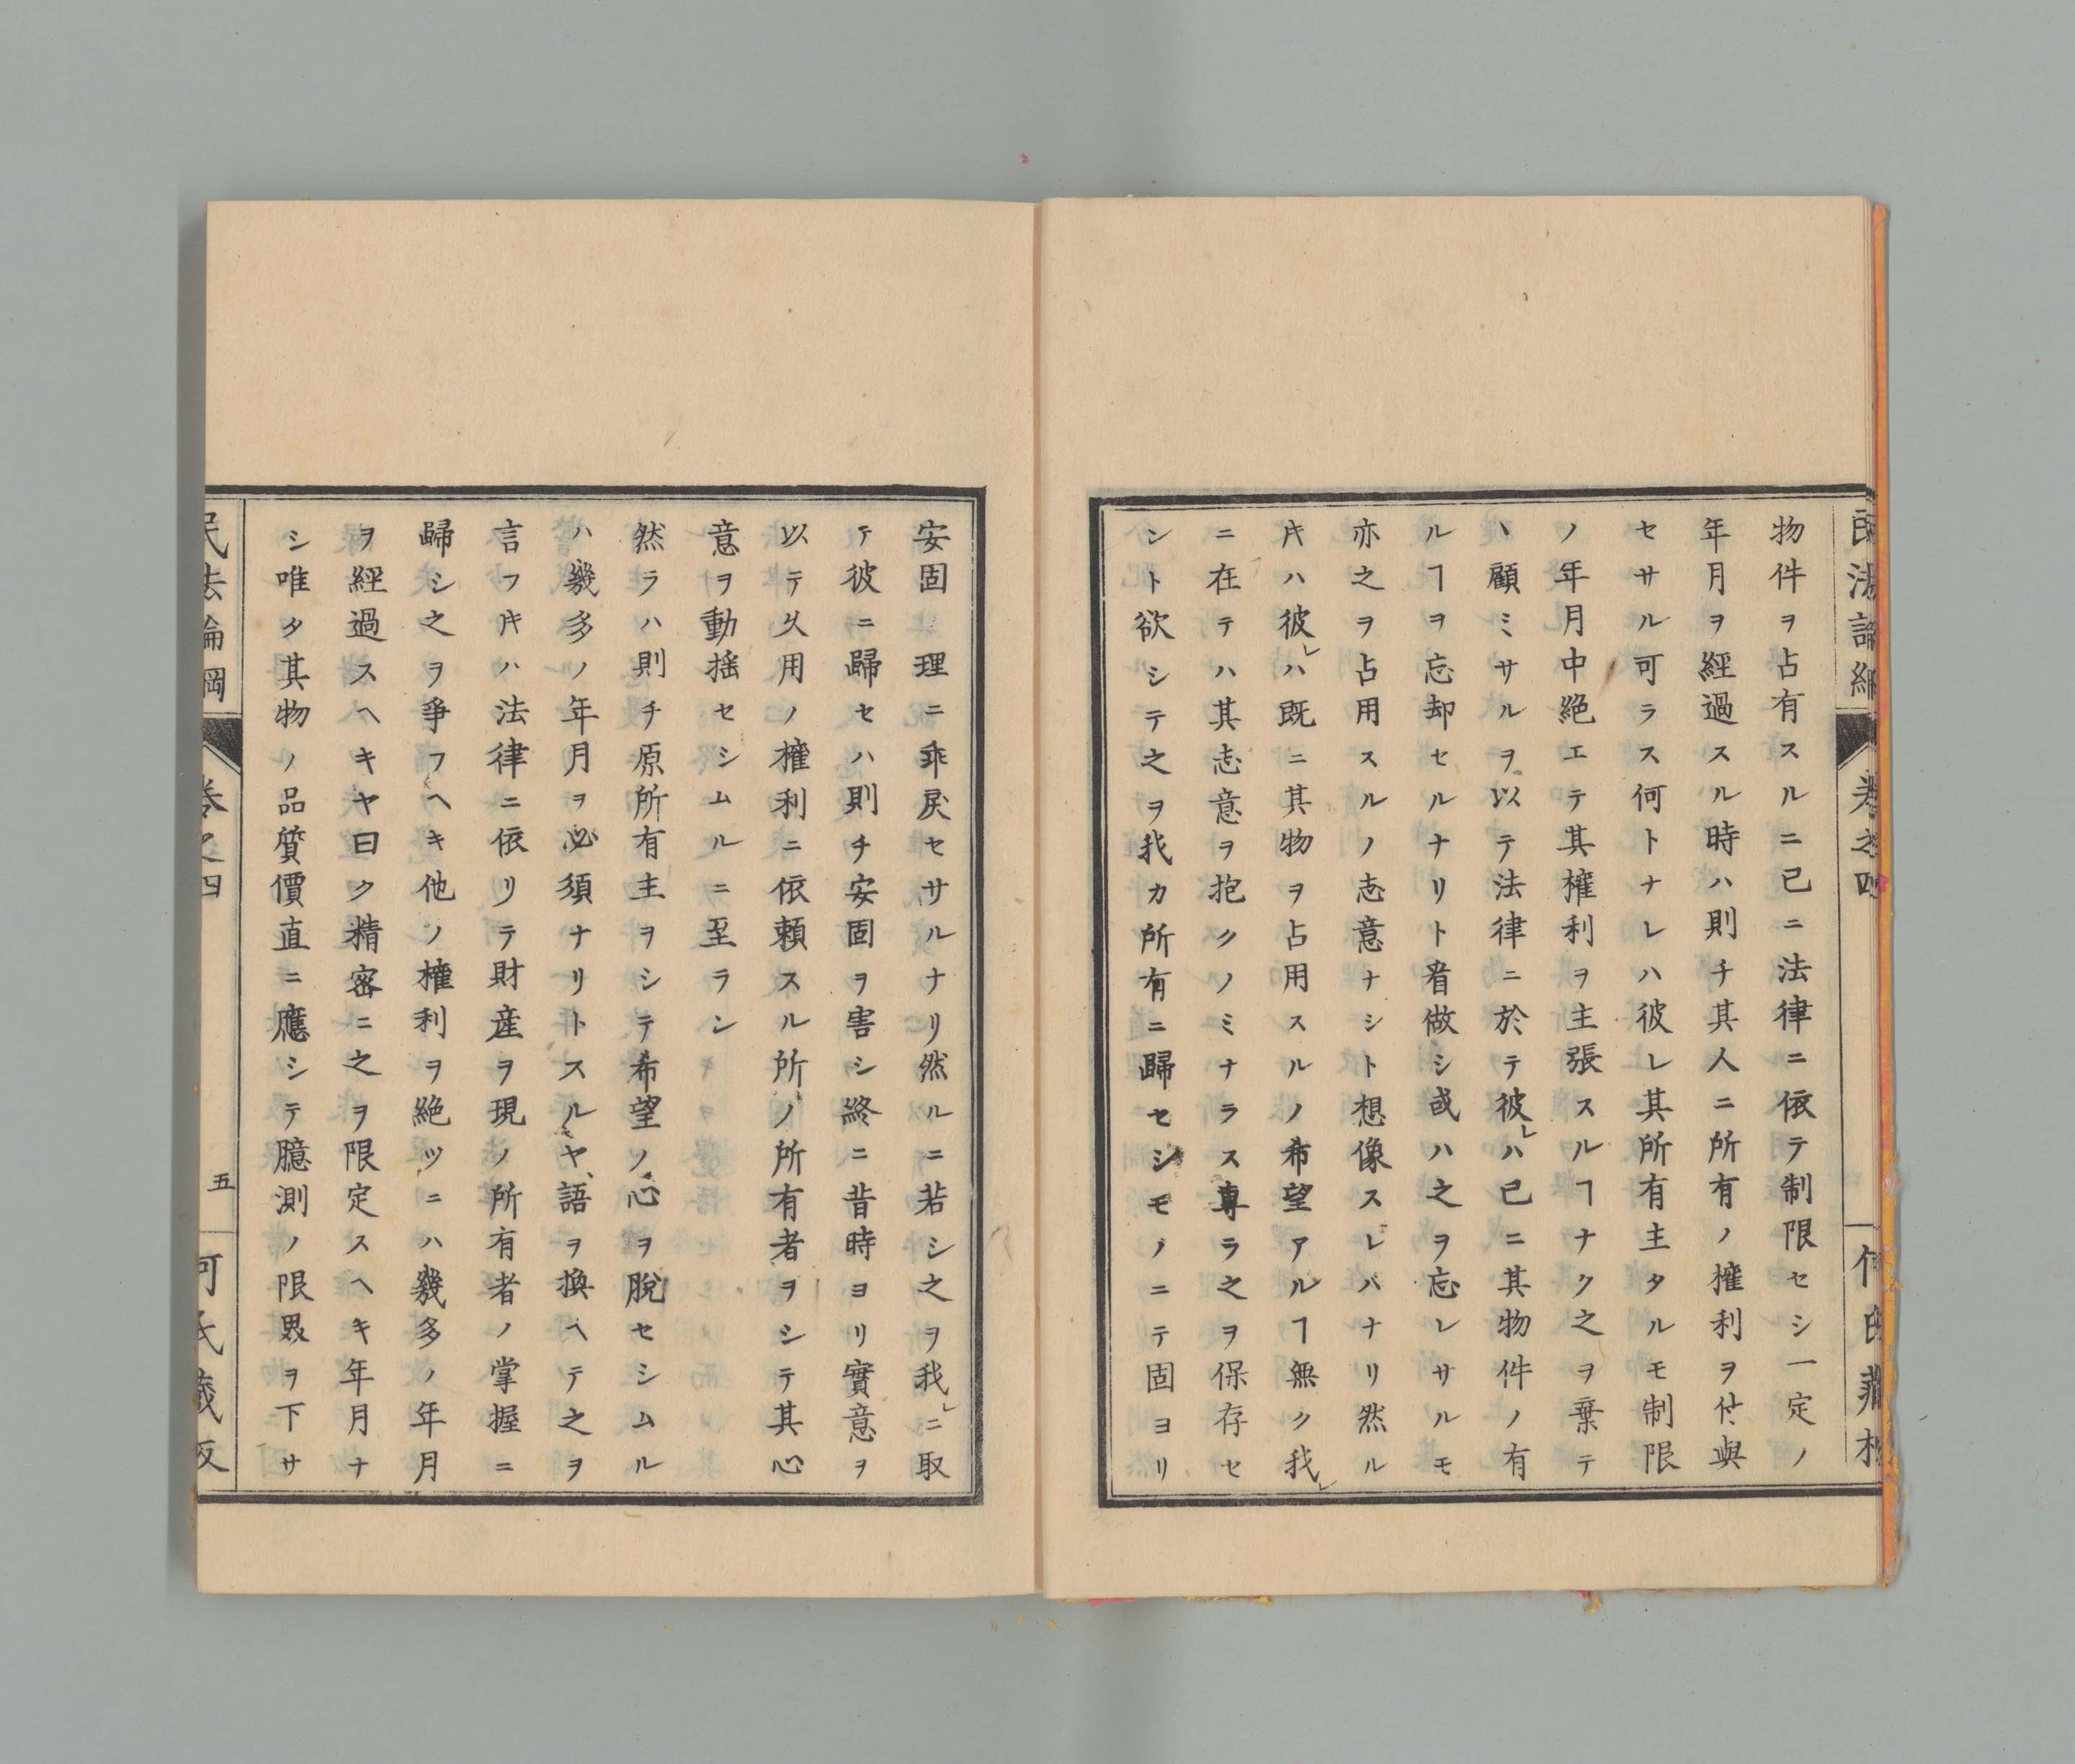 民法論綱
卷之四
何氏藏板
物件ヲ占有スルニ已ニ法律ニ依テ制限セシ一定ノ
年月ヲ經過スル時ハ則チ其人ニ所有ノ權利ヲ付與
セサル可ラス何トナレハ彼レ其所有主タルモ制限
ノ年月中絶エテ其權利ヲ主張スルヿナク之ヲ棄テ
ヽ顧ミサルヲ以テ法律ニ於テ彼レハ已ニ其物件ノ有
ルヿヲ忘却セルナリト看做シ或ハ之ヲ忘レサルモ
亦之ヲ占用スルノ志意ナシト想像スレバナリ然ル
𪜈ハ彼レハ既ニ其物ヲ占用スルノ希望アルヿ無ク我レ
ニ在テハ其志意ヲ抱クノミナラス專ラ之ヲ保存セ
ント欲シテ之ヲ我カ所有ニ歸セシモノニテ固ヨリ
安固ノ理ニ乖戻セサルナリ然ルニ若シ之ヲ我レニ取
テ彼ニ歸セハ則チ安固ヲ害シ終ニ昔時ヨリ實意ヲ
以テ久用ノ權利ニ依頼スル所ノ所有者ヲシテ其心
意ヲ動揺セシムルニ至ラン
然ラハ則チ原所有主ヲシテ希望ノ心ヲ脫セシムル
ハ幾多ノ年月ヲ必須ナリトスルヤ、語ヲ換ヘテ之ヲ
言フ𪜈ハ法律ニ依リテ財産ヲ現ノ所有者ノ掌握ニ
歸シ之ヲ爭フヘキ他ノ權利ヲ絶ツニハ幾多ノ年月
ヲ經過スヘキヤ曰ク精密ニ之ヲ限定スヘキ年月ナ
シ唯タ其物ノ品質價直ニ應シテ臆測ノ限界ヲ下サ
民法論綱
卷之四
五
何氏藏板